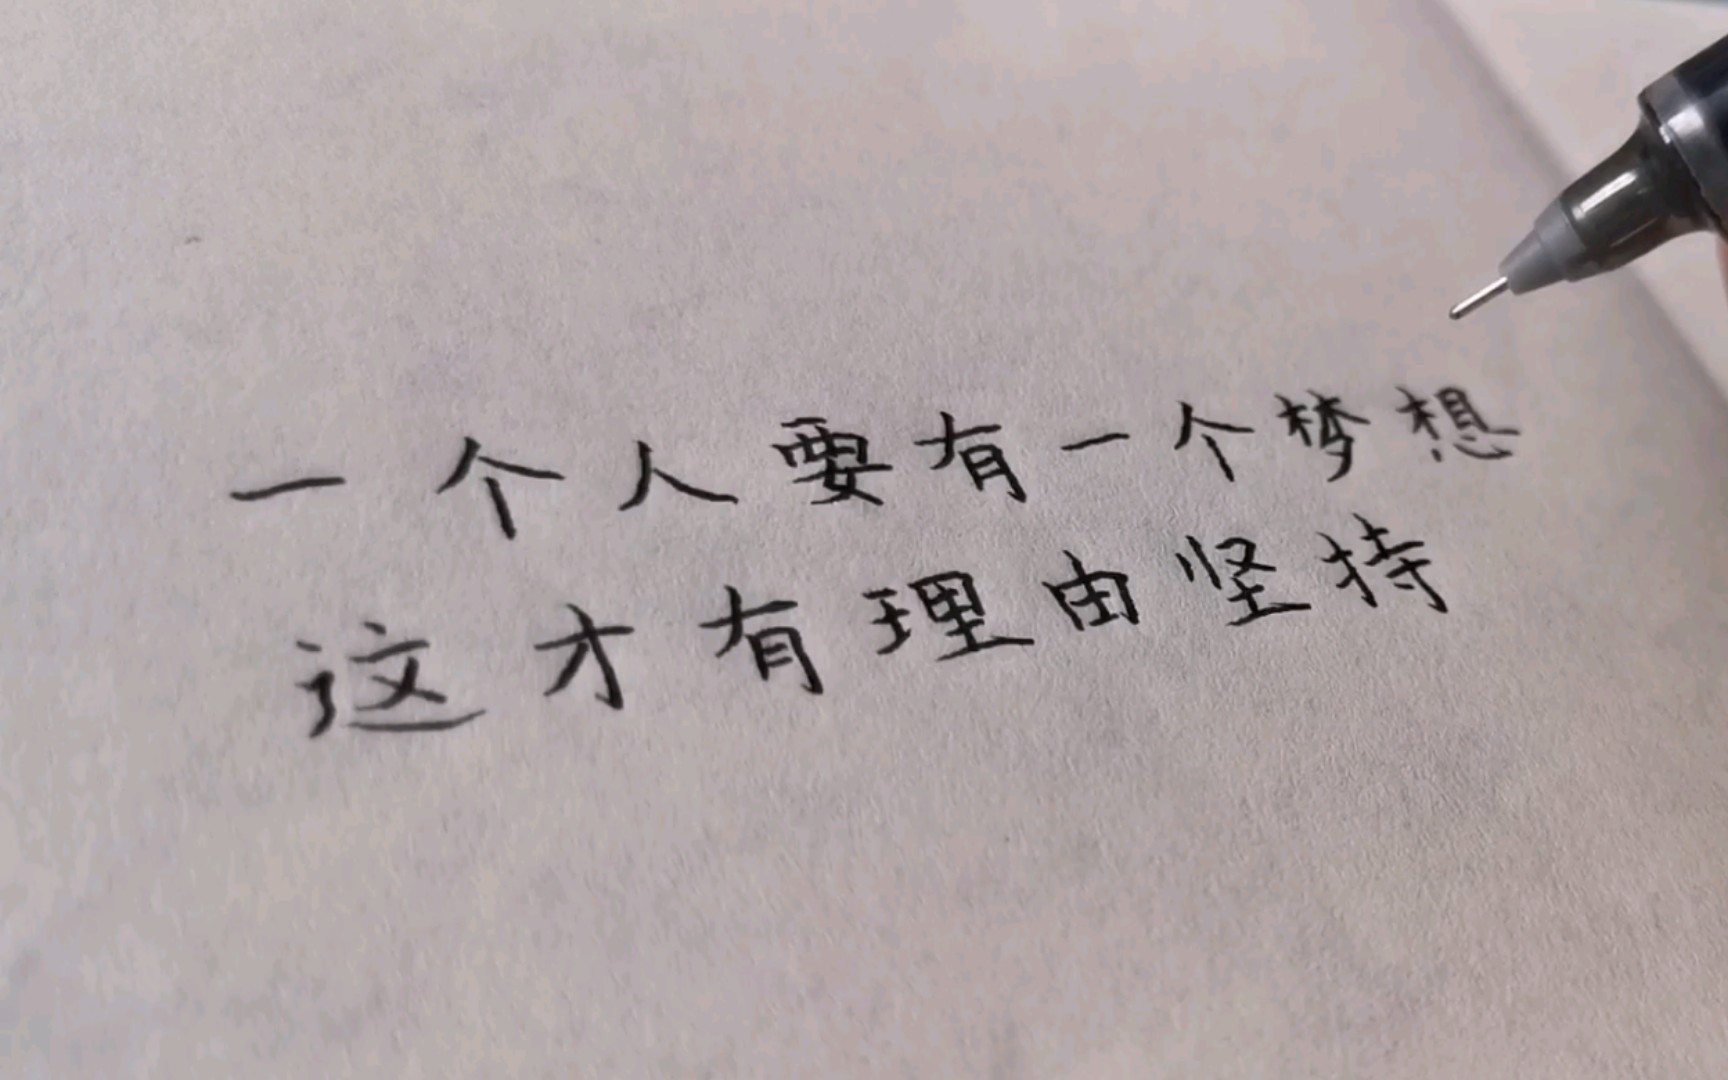 一个人要有一个梦想
这才有理由坚持